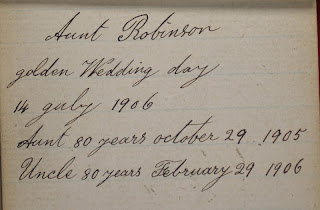 Aunt Robinson
golden Wedding day
14 july 1906
Aunt 80 years october 29 1905
Uncle 80 years February 29 1906